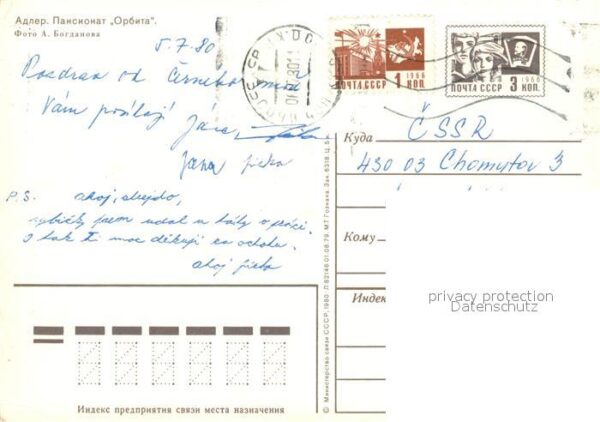 Адлер. Пансионат „Орбита".
Фото А. Богданова
5.7.80
Pozdrav od Černého moře
Vám posílají Jára,
Jana Jirka
P.S. ahoj, strejdo,
jsem udal u táty v práci.
I tak Ti moc děkuji za ochotu.
ahoj Jirka
ПОЧТА СССР 1 1966 КОП.
ПОЧТА СССР 3 1966 КОП.
Куда ČSSR
430 03 Chomutov 3
Кому
Индек
privacy protection
Datenschutz
Индекс предприятия связи места назначения
© Министерство связи СССР, 1980. Л 82146 01.08.79. МТ Гознака. Зак. 6318. Ц. 5 к.